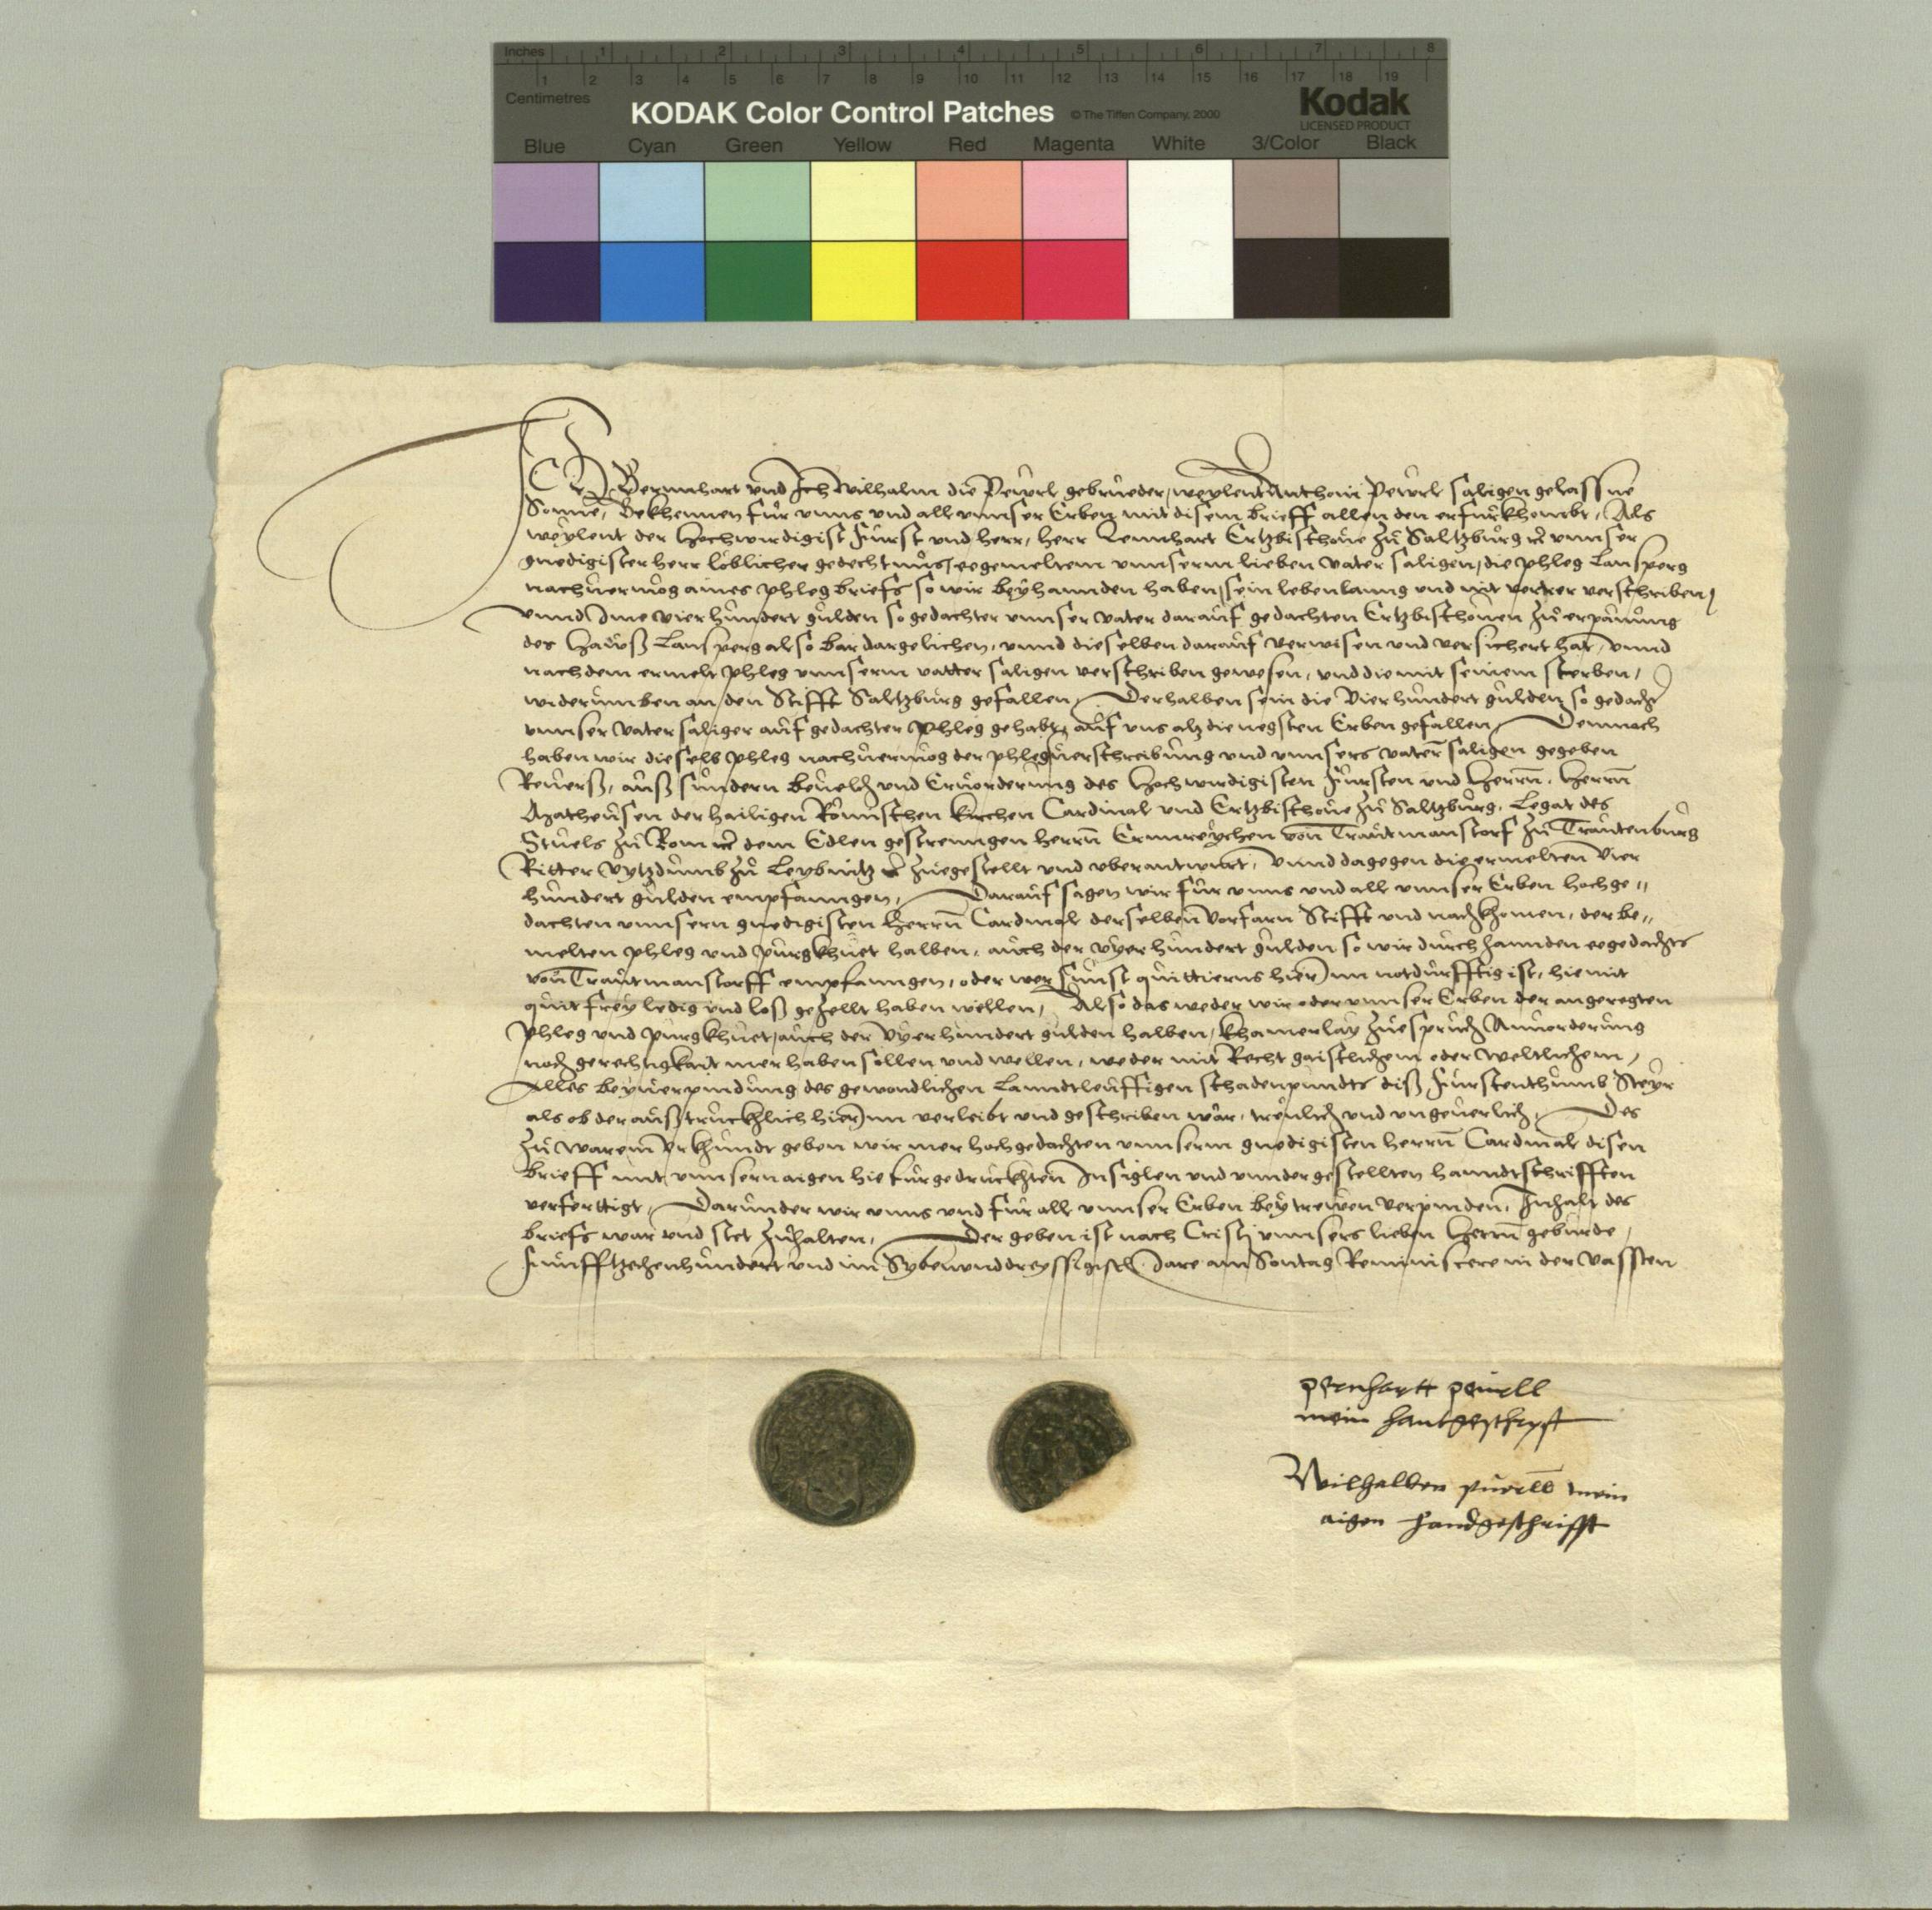 Inches 1 2 3 4 5 6 7 8
1 2 3 4 5 6 7 8 9 10 11 12 13 14 15 16 17 18 19
Centimetres
KODAK Color Control Patches © The Tiffen Company, 2000 Kodak
LICENSED PRODUCT
Blue Cyan Green Yellow Red Magenta White 3/Color Black
ICH Bernnhart vnd Ich Wilhalm die Pewrl gebrueder, weylent Anthoni Pewrl saligen gelassne
Sonne, Bekhennen für vnns vnd all vnnser Erben mit disem brieff allen den er fürkhombt, Als
weylent der Hochwirdigist Fürst vnd herr, herr Lennhart Ertzbischoue zu Saltzburg vnnser
gnedigister herr löblicher gedechtnus, eegemeltem vnnserm lieben vater saligen, die phleg Lansperg
nachuermog aines phleg briefs so wir beyhannden haben, sein lebenlanng vnd nit verrer verschriben,
vnnd Ime vier hundert gulden so gedachter vnnser vater darauf gedachten Ertzbischouen zu erpauung
des Hauss Lansperg also bar dargelichen, vnnd dieselben darauf verwisen vnd versichert hat, vnnd
nachdem ermelt phleg vnnserm vatter saligen verschriben gewesen, vnd die mit seinem sterben,
widerumben an den Stifft Saltzburg gefallen, Derhalben sein die Vierhundert gulden so gedacht
vnnser vater saliger auf gedachter Phleg gehabt, auf vns alz die negsten Erben gefallen, Demnach
haben wir dieselb phleg nachuermog der phlegverschreibung vnd vnnsers vater saligen gegeben
Reuerss, auss sundern beuelch vnd Eruorderung des Hochwirdigisten Fürsten vnd Herrn, Herrn
Matheusen der heiligen Römischen kirchen Cardinal vnd Ertzbischoue zu Saltzburg, Legat des
Stuels zu Rom dem Edlen gestrenngen herrn Ermreychen von Trautmanstorf zu Trautenburg
Ritter Vytzdumb zu Leybnitz zuegestellt vnd vberantwurt, vnnd dagegen die ermelten Vier
hundert gulden empfanngen, Darauf sagen wir für vnns vnd all vnnser Erben hochge-
dachten vnnsern gnedigisten Herrn Cardinal derselben Vorfarn Stifft vnd nachkhomen, der be-
melten phleg vnd purgkhuet halben, auch der vyer hundert gulden so wir durch hannden eegedachts
von Trautmanstorff empfanngen, oder wer sunst quittierns hierinn notdurfftig ist, hiemit
quit frey ledig vnd loss gezellt haben wellen, Also das weder wir oder vnnser Erben der angeregten
Phleg vnd purgkhuet, auch der Vyer hundert gulden halben, khainerlay zuespruch Anuorderung
noch gerechtigkait mer haben sollen vnd wellen, weder mit Recht gaistlichem oder Weltlichem,
Alles bey verpindung des gewondlichen lanndtleuffigen schadenpundts diss Furstenthumb Steyr
als ob der auss truckhlich hierinn verleibt vnd geschriben wär, treulich vnd vngeuerlich, Des
zu warem Vrkhundt geben wir mer hochgedachten vnnserm gnedigisten herrn Cardinal disen
brieff mit vnnsern aigen hie fürgedruckhten Insiglen vnd vnndergestellten hanndtschrifften
verferttigt, Darunder wir vnns vnd für all vnnser Erben bey trewen verpinden, Inhalt des
briefs war vnd stet zuhalten, Der geben ist nach Cristi vnnsers lieben Herrn geburde,
Funfftzehenhundert vnd im Sybenunddreyssigisten Jare am Sontag Reminiscere in der Vassten
pernhartt peurll
mein hantgeschryft
Wilhallem peurll mein
aigen handgeschrifft